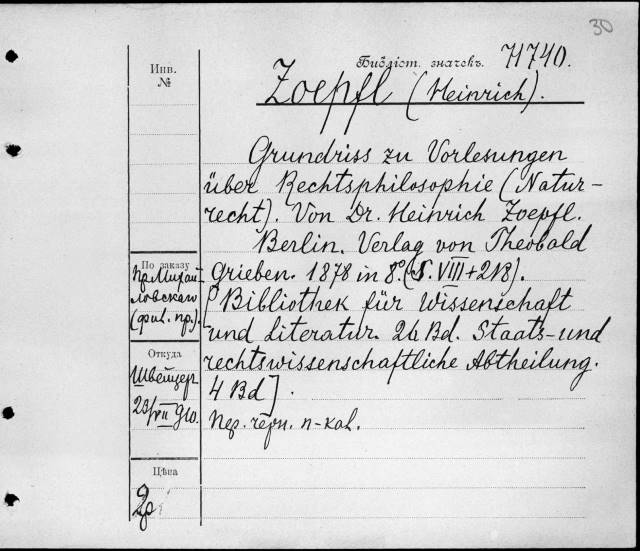 30
Инв.
№
Библіот. значекъ. 71740.
Zoepfl (Heinrich).
Grundriss zu Vorlesungen
über Rechtsphilosophie (Natur-
recht). Von Dr. Heinrich Zoepfl.
Berlin. Verlag von Theobald
Grieben. 1878 in 8° (S. VIII + 218).
[Bibliothek für Wissenschaft
und Literatur. 26 Bd. Staats- und
rechtswissenschaftliche Abtheilung.
4 Bd].
Пер. черн. п-кал.
По заказу
пр. Михай-
ловскаго
Откуда
Швейцер
23/VII 910.
Цѣна